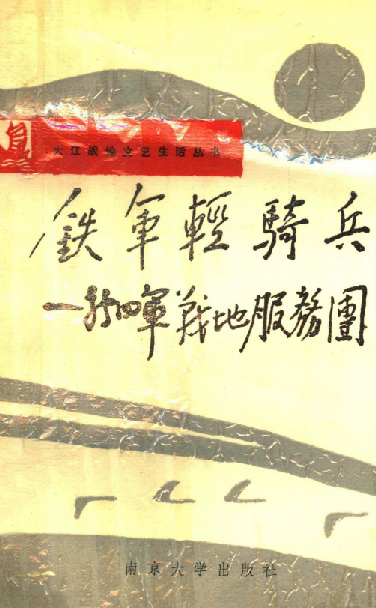 大江战地文艺生活丛书
鉄軍輕騎兵
—新四軍戰地服務團
南京大学出版社